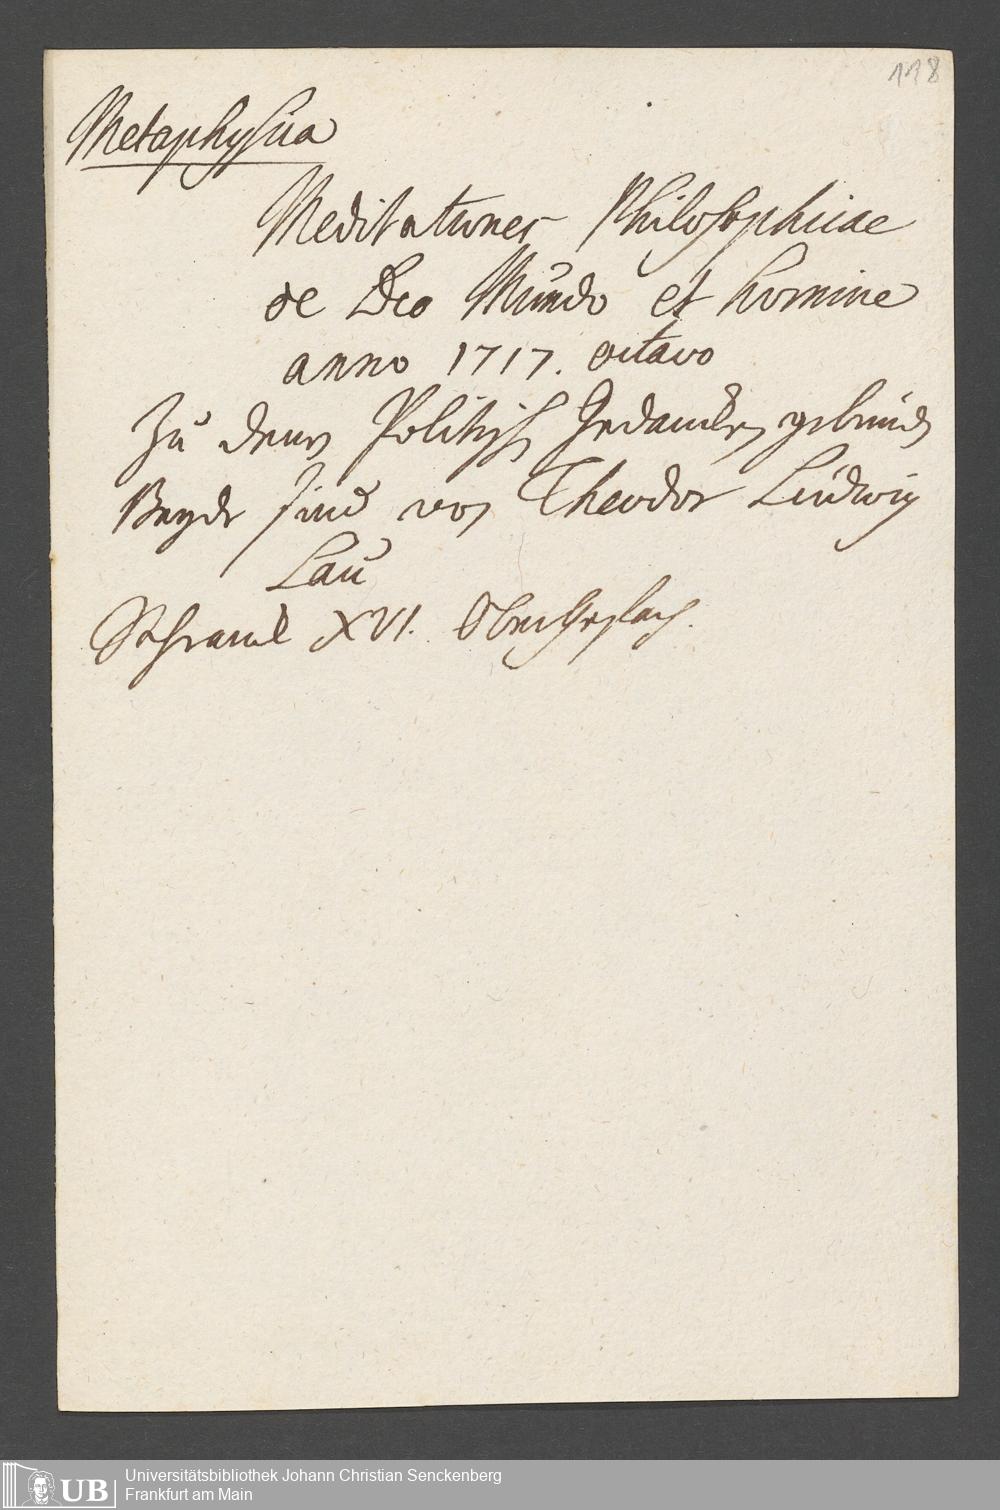 118
Metaphysica
Meditationes Philosophicae
de Deo Mundo et homine
anno 1717. octavo
Zu denen Politisch Gedancken gebunden
Beyde sind von Theodor Ludwig
Lau
Schranck XVI.
Universitätsbibliothek Johann Christian Senckenberg
Frankfurt am Main
UB